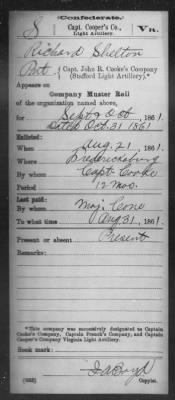 Confederate.
S Capt. Cooper's Co., Va.
Light Artillery.
Richard Shelton
Pvt., Capt. John R. Cooke's Company
(Stafford Light Artillery).*
Appears on
Company Muster Roll
of the organization named above,
for Sept & Oct, 1861.
Dated Oct. 31 1861
Enlisted:
When Aug. 21, 1861.
Where Fredericksburg
By whom Capt. Cooke
Period 12 Mos.
Last paid:
By whom Maj. Cone
To what time Aug 31, 1861.
Present or absent Present
Remarks:
*This company was successively designated as Captain
Cooke's Company, Captain French's Company, and Captain
Cooper's Company Virginia Light Artillery.
Book mark:
J A Boyd
(642) Copyist.